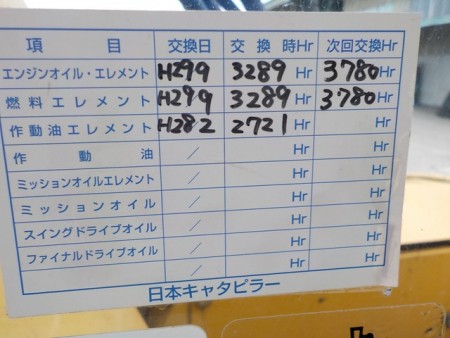 項目 交換日 交換時Hr 次回交換Hr
エンジンオイル・エレメント H29.9 3289Hr 3780Hr
燃料エレメント H29.9 3289Hr 3780Hr
作動油エレメント H28.2 2721Hr Hr
作動油 / Hr Hr
ミッションオイルエレメント / Hr Hr
ミッションオイル / Hr Hr
スイングドライブオイル / Hr Hr
ファイナルドライブオイル / Hr Hr
/ Hr Hr
日本キャタピラー